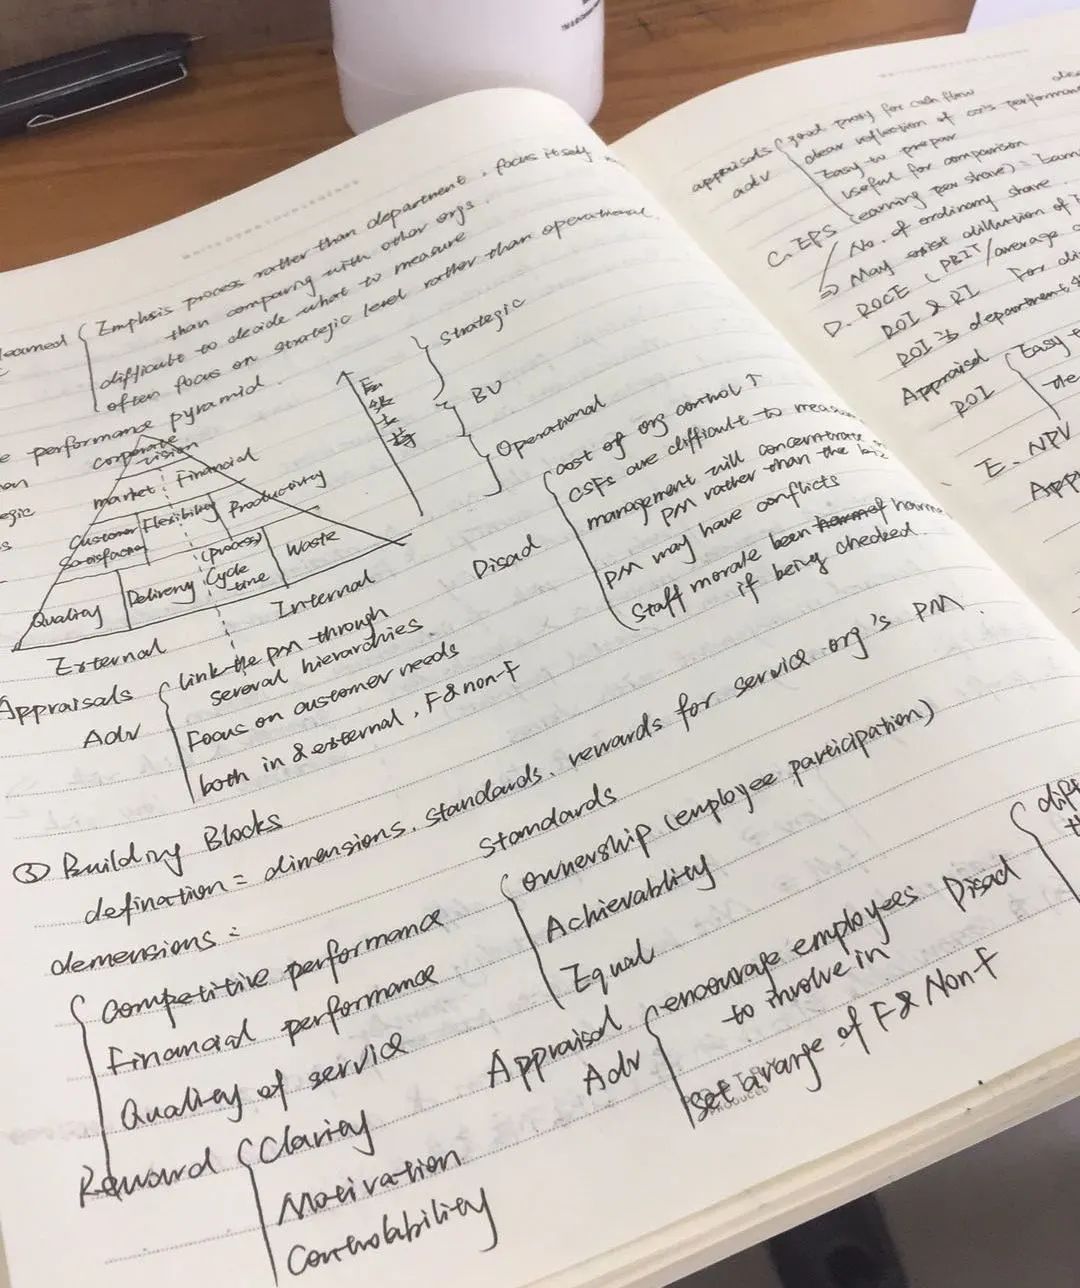 learned
Emphsis process rather than department, focus itself
than comparing with other orgs.
difficult to decide what to measure
often focus on strategic level rather than operational.
performance pyramid.
corporate
vision
market Financial
Customer
Satisfaction
Flexibility
Productivity
Quality
Delivery
(process)
Cycle
time
Waste
External
Internal
Strategic
BU
Operational
Appraisals
Adv
link the pm through
several hierarchies
Focus on customer needs
both in & external, F&non-F
Disad
cost of org control ↑
CSFs are difficult to measure
management will concentrate
PM rather than the
PM may have conflicts
Staff morale been harm
if being checked.
③ Building Blocks
defination = dimensions, standards, rewards for service org's PM.
demensions:
Competitive performance
Financial performance
Quality of service
Standards
ownership (employee participation)
Achievablity
Equal
Reward
Clarity
Motivation
Controlability
Appraisal
Adv
encourage employees
to involve in
set a range of F& Non-F
Disad
appraisals
adv
good proxy for cash flow
clear reflection of co's performance
Easy to prepar
useful for comparison
C. EPS (earning per share) =
No. of ordinary share.
⇒ May exist dillution of
D. ROCE (PBIT/average
ROI & RI For
ROI is department
Appraisal
ROI
Easy
E. NPV